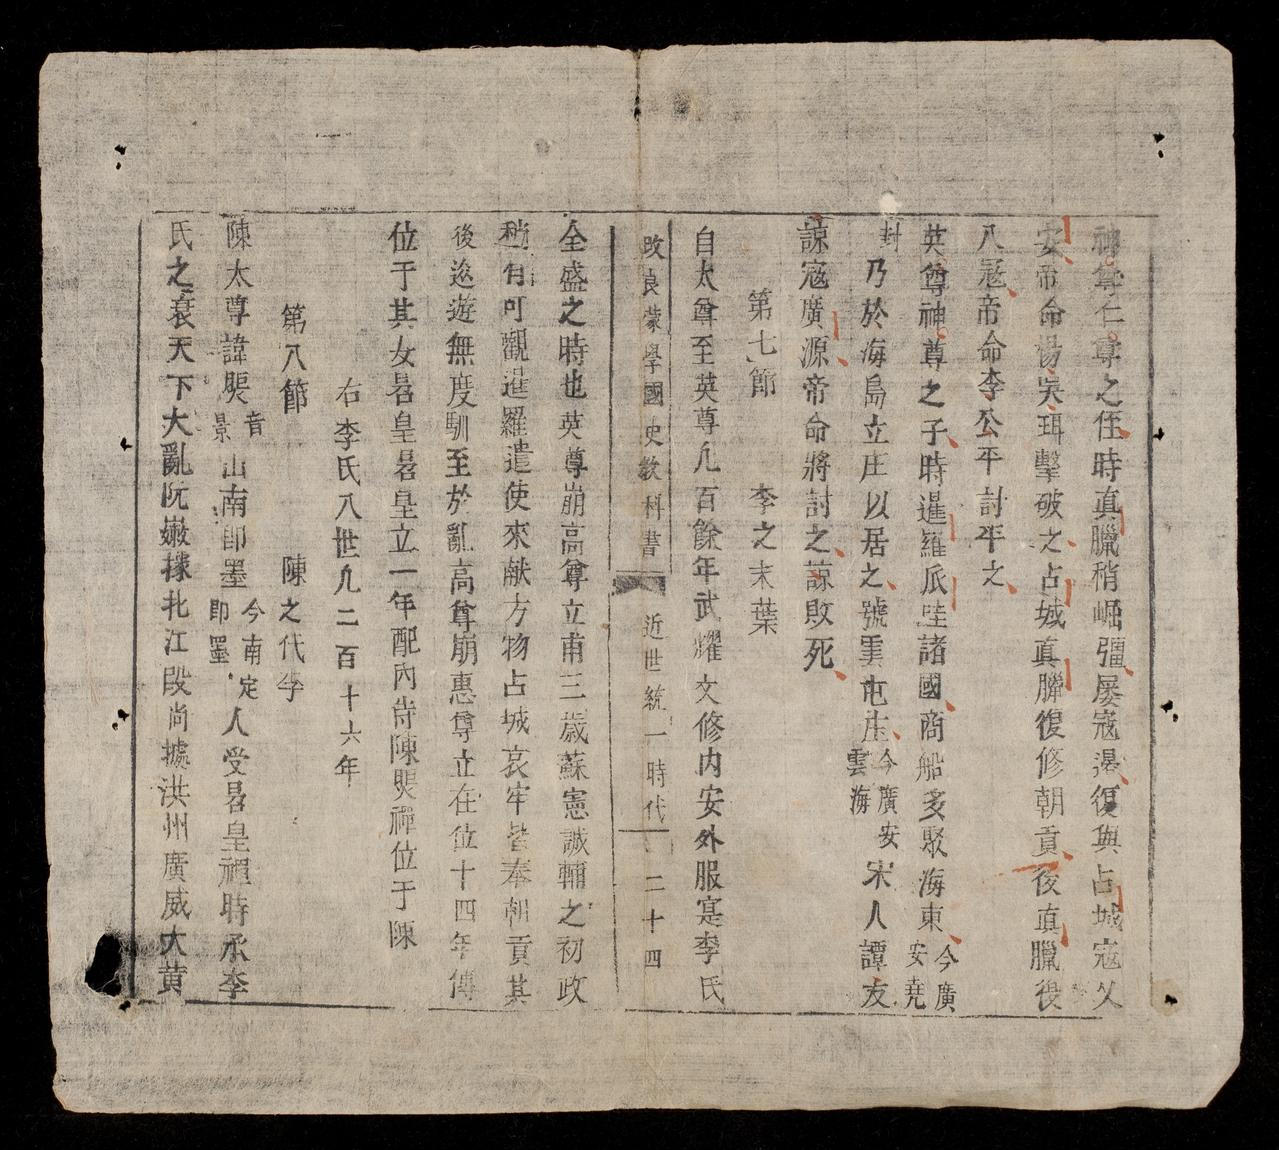 神尊仁尊之侄時真臘稍崛彊屡寇邊復與占城寇乂
安帝命楊吳珥擊破之占城真臘復修朝貢後真臘復
入寇帝命李公平討平之
英尊神尊之子時暹羅瓜哇諸國商船多聚海東今廣安堯
封乃於海島立庄以居之號雲屯庄今廣安雲海宋人譚友
諒寇廣源帝命將討之諒敗死
第七節 李之末葉
自太尊至英尊凡百餘年武耀文修内安外服寔李氏
改良蒙學國史教科書 近世統一時代 二十四
全盛之時也英尊崩高尊立甫三歲蘇憲誠輔之初政
稍有可觀暹羅遣使來献方物占城哀牢皆奉朝貢其
後遊無度馴至於亂高尊崩惠尊立在位十四年傳
位于其女昭皇昭皇立一年配内侍陳煚禪位于陳
右李氏八世凡二百十六年
第八節 陳之代李
陳太尊諱煚音景山南即墨今南定即墨人受昭皇禪時承李
氏之衰天下大亂阮嫩據北江段尚據洪州廣威大黄